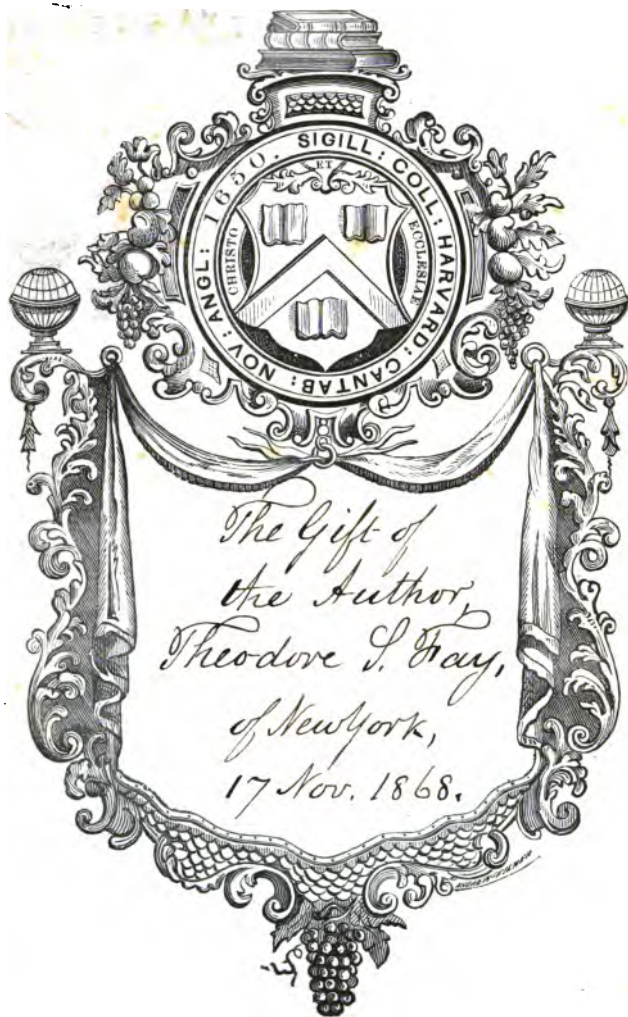 SIGILL: COLL: HARVARD: CANTAB: NOV: ANGL: 1650.
ET
CHRISTO
ECCLESIAE
The Gift of
the Author,
Theodore S. Fay,
of New York,
17 Nov. 1868.